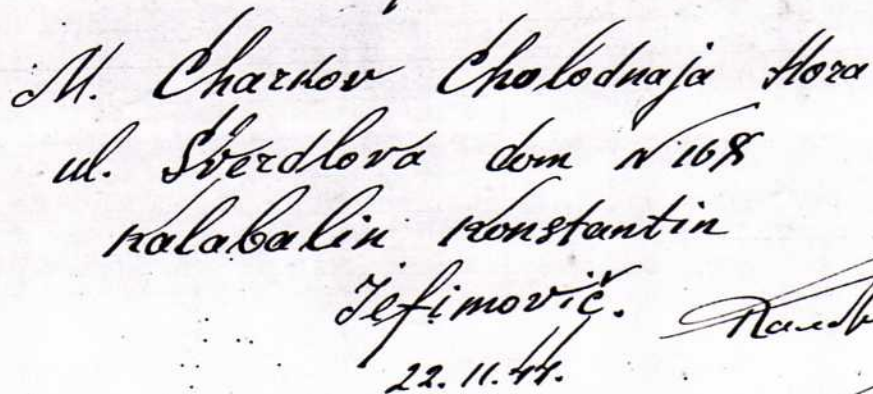 M. Charkov Cholodnaja Hora
ul. Sverdlova dom N 168
Kalabalin Konstantin
Jefimovič.
22.11.44.